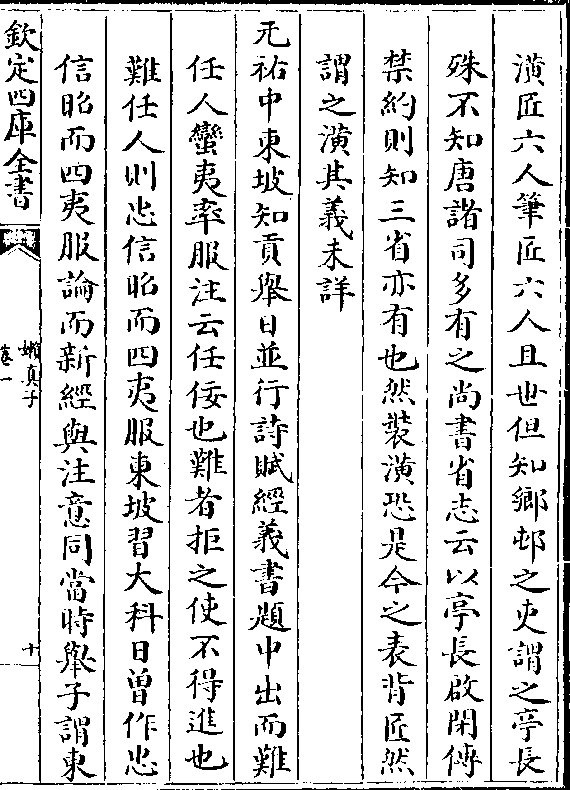 潢匠六人筆匠六人且世但知鄉邨之吏謂之亭長
殊不知唐諸司多有之尚書省志云以亭長啟閉傳
禁約則知三省亦有也然裝潢恐是今之表背匠然
謂之潢其義未詳
元祐中東坡知貢舉日並行詩賦經義書題中出而難
任人蠻夷率服注云任佞也難者拒之使不得進也
難任人則忠信昭而四夷服東坡習大科日曾作忠
信昭而四夷服論而新經與注意同當時舉子謂東
欽定四庫全書
嬾真子
卷一
十